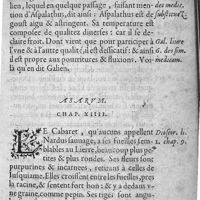 lien, lequel en quelque passage, faisant men- des medic.
tion d'Aspalathus, dit ainsi: Aspalathus est de substance
goust aigu & astringent. Sa temperature est
composee de qualitez diverses: car il se de-
claire froit. Dont vient que pour participer à Gal. livre
l'vne & à l'autre qualité, il est desiccatif: & ainsi 6. des sim.
est propre aux pourritures & fluxions. Voy- medicam.
là qu'en dit Galien.
ASARVM.
CHAP. XIIII.
LE Cabaret, qu'aucuns appellent Dioscor. li.
Nardus sauuage, a ses fueilles sem- 1. chap. 9.
blables au Lierre, beaucoup plus pe-
tites & plus rondes. Ses fleurs sont
purpurines & incarnees, retirans à celles de
Iusquiame. Elles croissent entre les fueilles, pres
la racine, & sentent fort bon: & y a dedans vn
pe graine, comme pepin. Ses tiges sont angu-